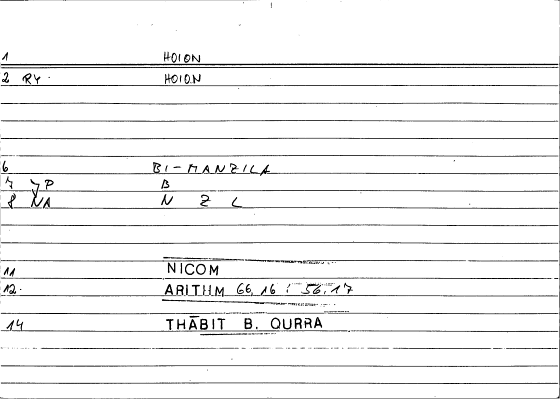 1 HOION
2 RY. HOION
6 BI-MANZILA
7 JP B
8 NA N Z L
11 NICOM
12. ARITHM 66,16 : 56.17
14 THĀBIT B. QURRA